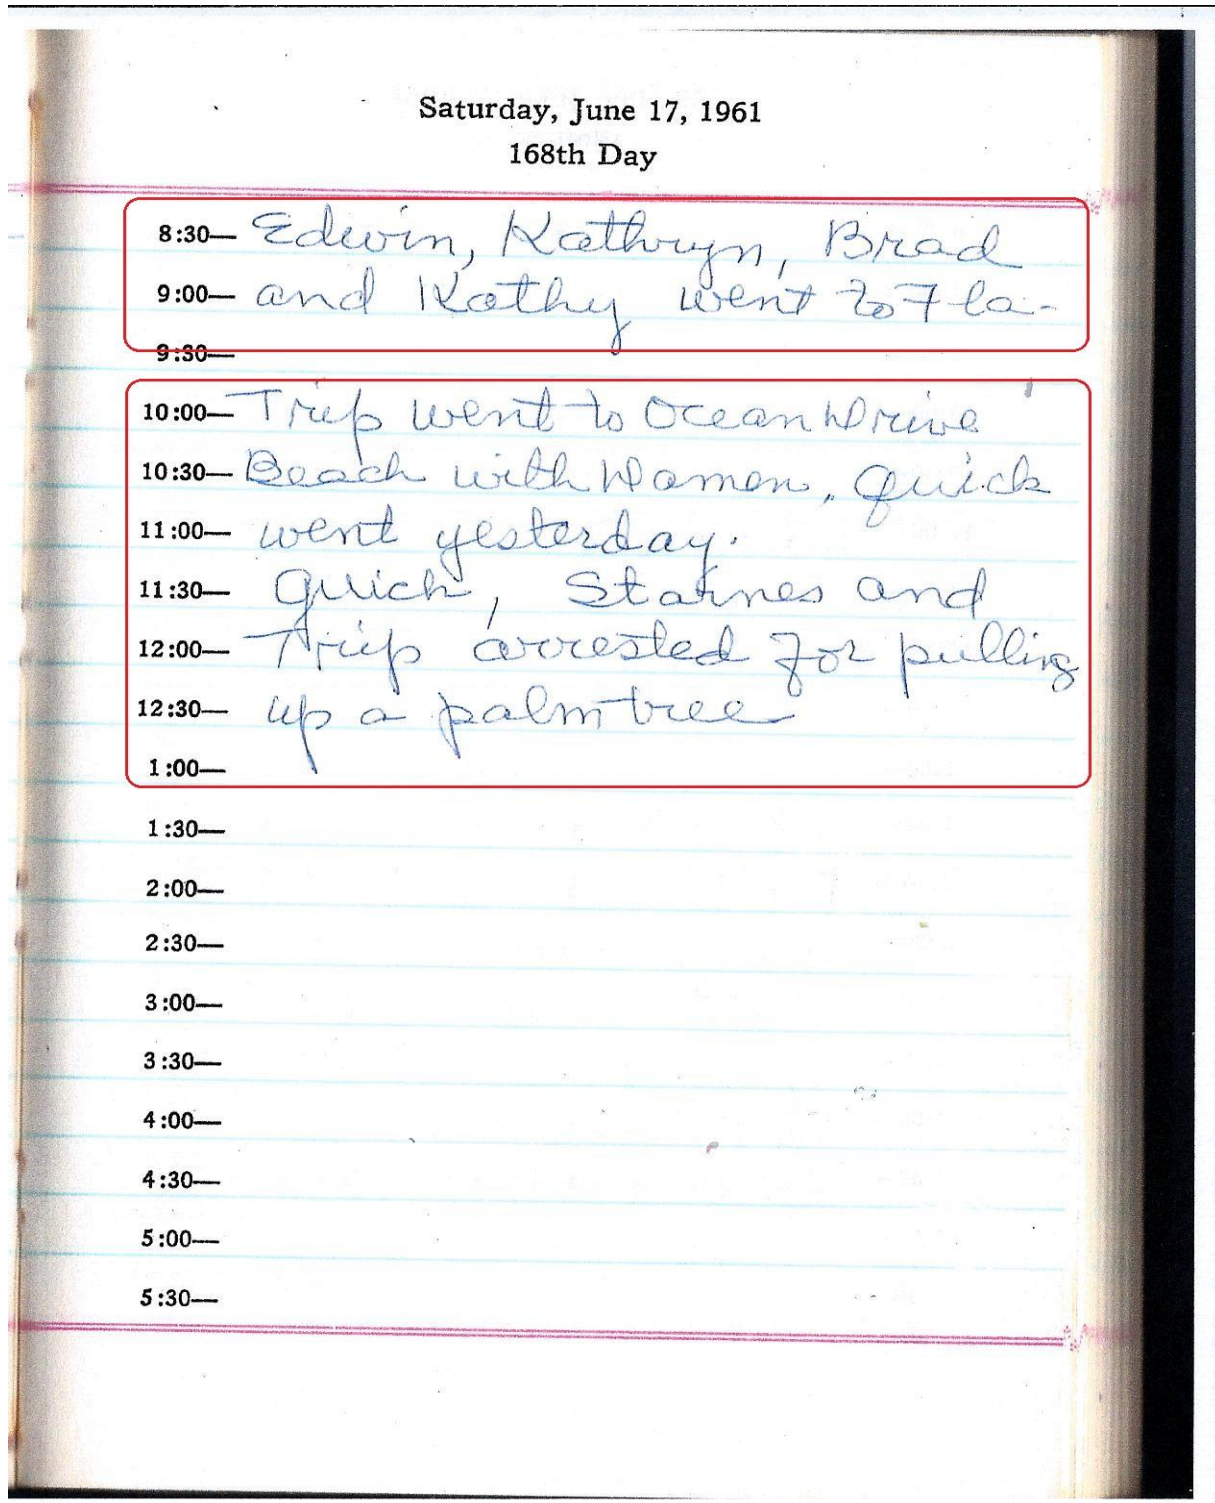 Saturday, June 17, 1961
168th Day
8:30— Edwin, Kathryn, Brad
9:00— and Kathy went to Fla-
9:30—
10:00— Trip went to Ocean Drive
10:30— Beach with Women, Quick
11:00— went yesterday.
11:30— Quick, Starnes and
12:00— Trip arrested for pulling
12:30— up a palm tree
1:00—
1:30—
2:00—
2:30—
3:00—
3:30—
4:00—
4:30—
5:00—
5:30—